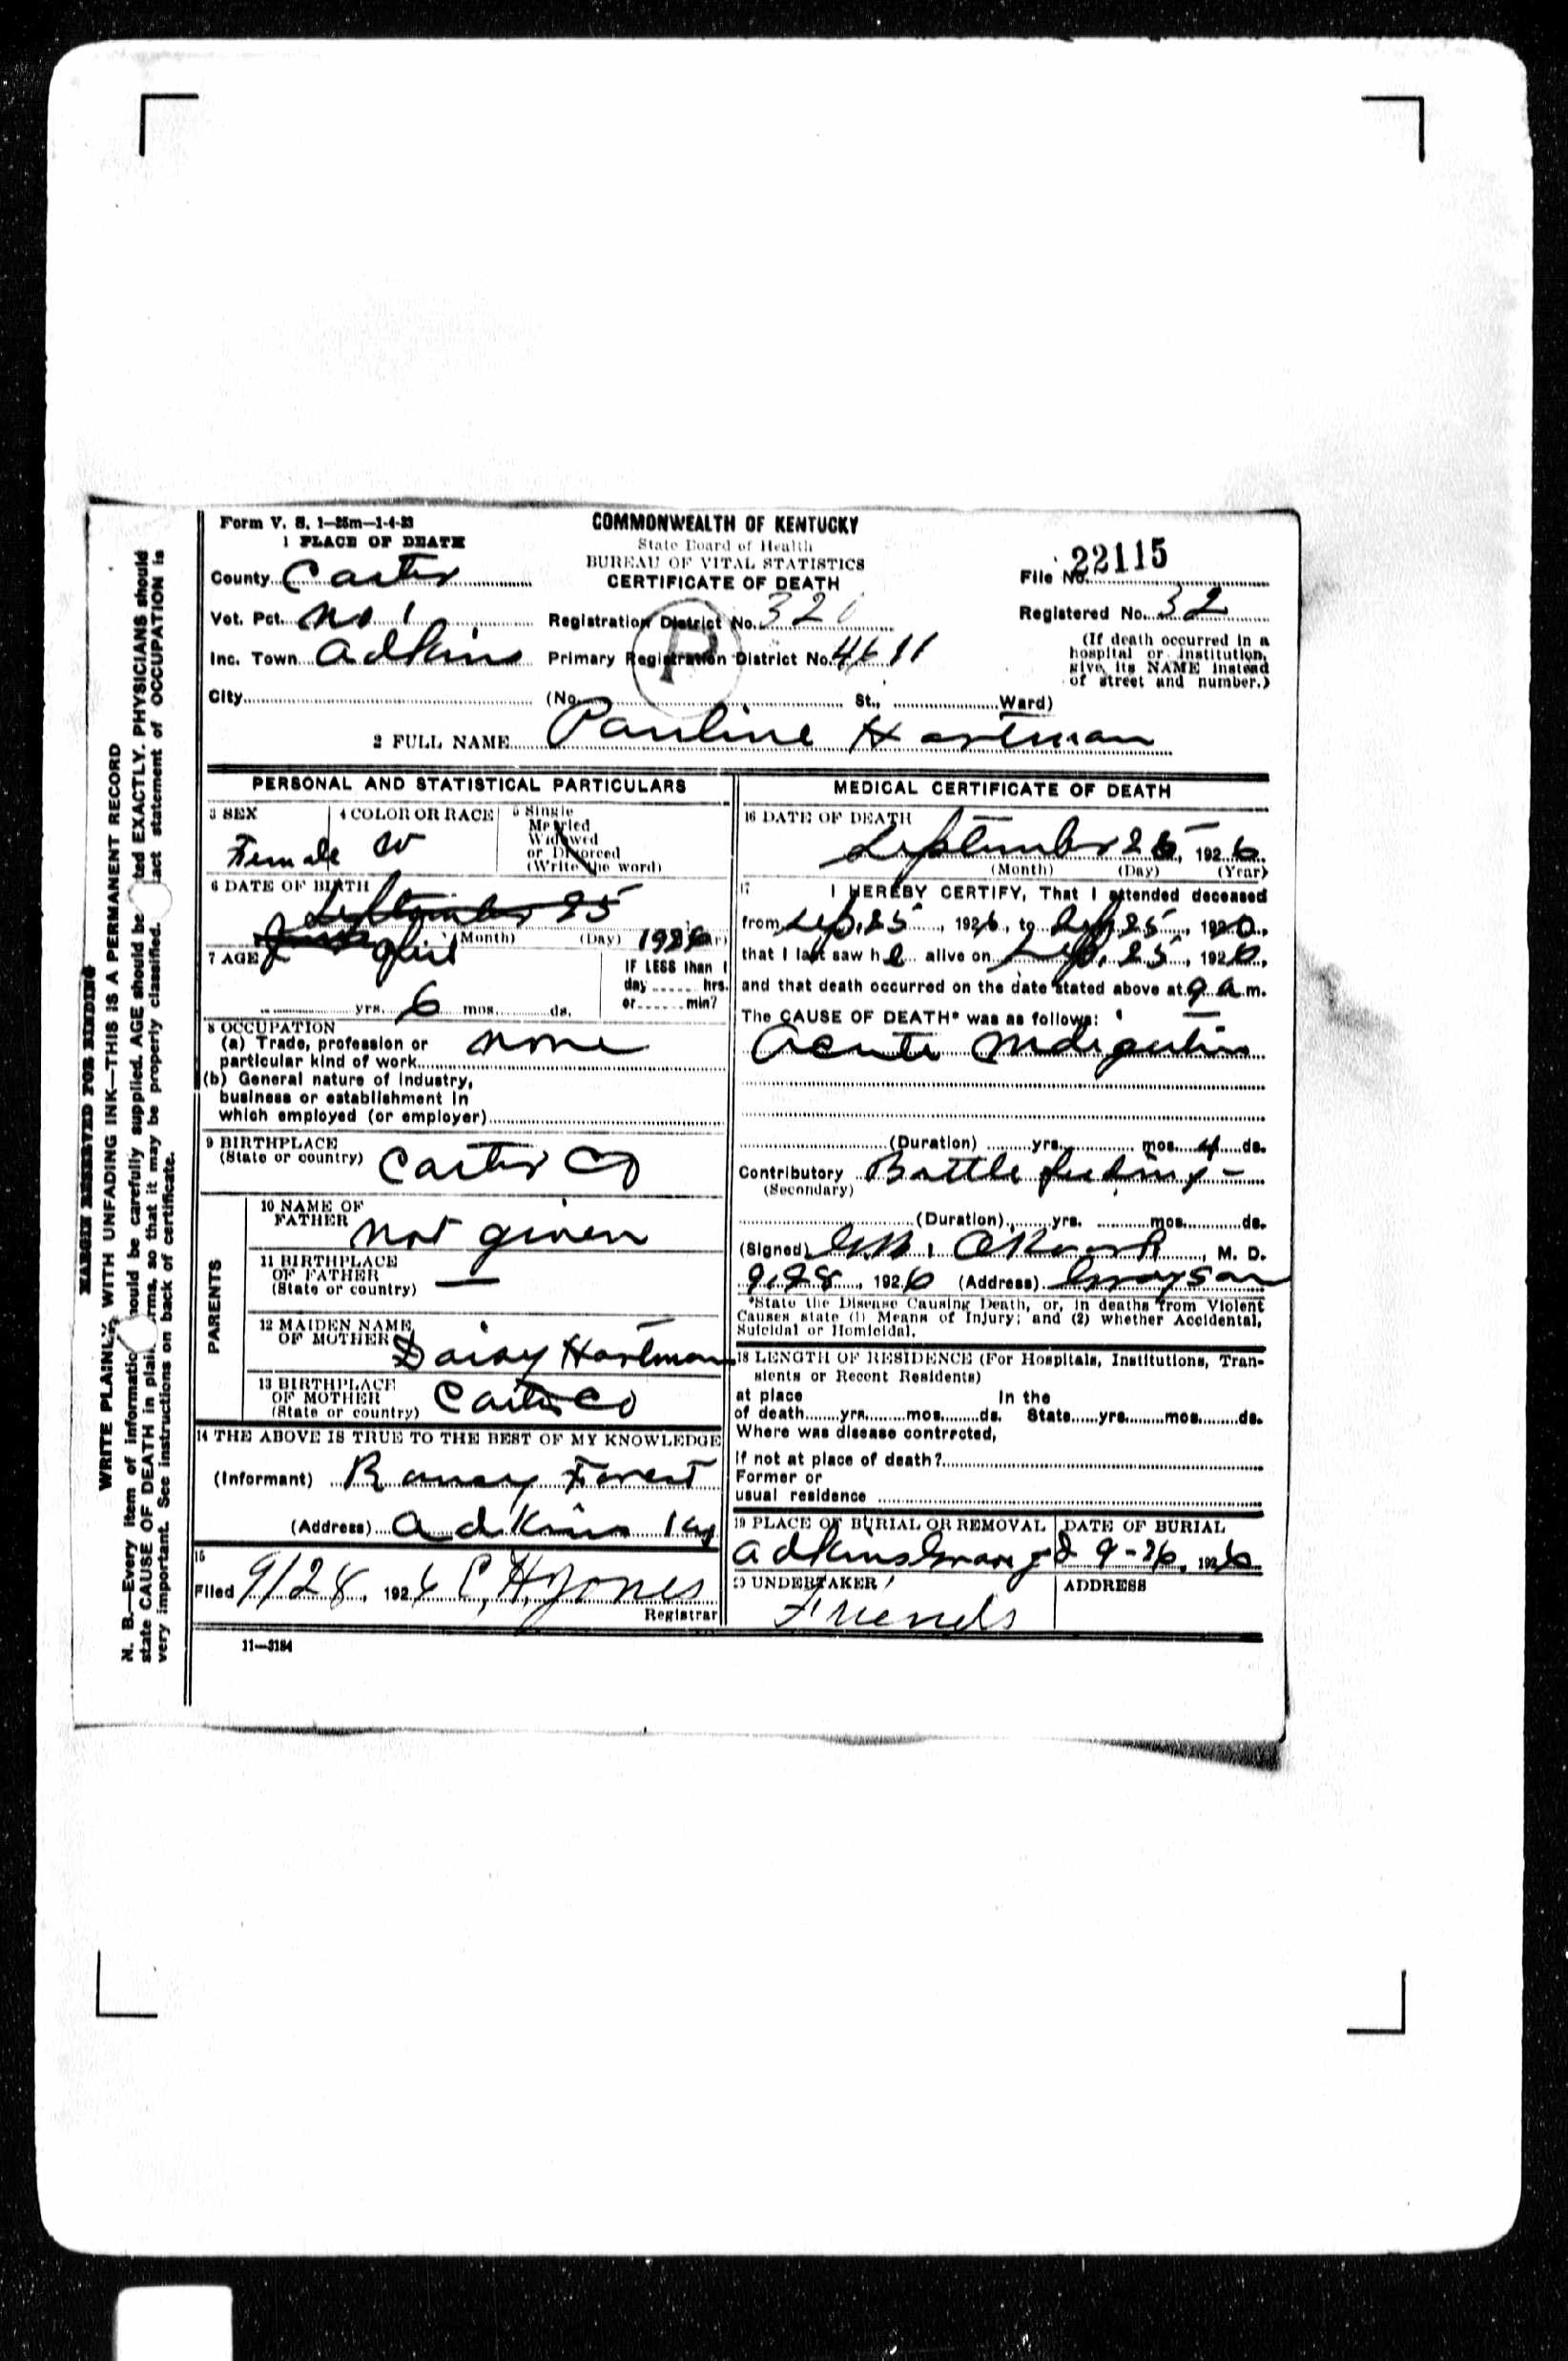 Form V. S. 1—25m—1-4-23
COMMONWEALTH OF KENTUCKY
1 PLACE OF DEATH
State Board of Health
BUREAU OF VITAL STATISTICS
CERTIFICATE OF DEATH
File No. 22115
County Carter
Vot. Pct. No 1
Registration District No. 320
Registered No. 32
Inc. Town Adkins
Primary Registration District No. 4611
(If death occurred in a
hospital or institution,
give its NAME instead
of street and number.)
City (No. St., Ward)
P
2 FULL NAME Pauline Hartman
PERSONAL AND STATISTICAL PARTICULARS
3 SEX
Female
4 COLOR OR RACE
W
5 Single
Married
Widowed
or Divorced
(Write the word)
6 DATE OF BIRTH
September 25
(Month) (Day) 1926
7 AGE
yrs. 6 mos. ds.
IF LESS than 1
day hrs.
or min?
8 OCCUPATION
(a) Trade, profession or
particular kind of work none
(b) General nature of industry,
business or establishment in
which employed (or employer)
9 BIRTHPLACE
(State or country) Carter Co
PARENTS
10 NAME OF
FATHER not given
11 BIRTHPLACE
OF FATHER
(State or country) —
12 MAIDEN NAME
OF MOTHER Daisy Hartman
13 BIRTHPLACE
OF MOTHER
(State or country) Carter Co
14 THE ABOVE IS TRUE TO THE BEST OF MY KNOWLEDGE
(Informant) Ramey Forest
(Address) Adkins Ky
15
Filed 9/28, 1926 C. H. Jones
Registrar
11—3184
MEDICAL CERTIFICATE OF DEATH
16 DATE OF DEATH
September 25, 1926
(Month) (Day) (Year)
17 I HEREBY CERTIFY, That I attended deceased
from Sep. 25, 1926, to Sep. 25, 1926,
that I last saw h e alive on Sep. 25, 1926,
and that death occurred on the date stated above at 9 a m.
The CAUSE OF DEATH* was as follows:
Acute Indigestion
(Duration) yrs. mos. 4 ds.
Contributory Bottle feeding -
(Secondary)
(Duration) yrs. mos. ds.
(Signed) M. D.
9.28, 1926 (Address) Grayson
*State the Disease Causing Death, or, in deaths from Violent
Causes state (1) Means of Injury; and (2) whether Accidental,
Suicidal or Homicidal.
18 LENGTH OF RESIDENCE (For Hospitals, Institutions, Tran-
sients or Recent Residents)
at place In the
of death yrs. mos. ds. State yrs. mos. ds.
Where was disease contracted,
if not at place of death?
Former or
usual residence
19 PLACE OF BURIAL OR REMOVAL
Adkins
DATE OF BURIAL
9-26, 1926
20 UNDERTAKER
Friends
ADDRESS
MARGIN RESERVED FOR BINDING
WRITE PLAINLY WITH UNFADING INK—THIS IS A PERMANENT RECORD
N. B.—Every item of informatio ould be carefully supplied. AGE should be ted EXACTLY. PHYSICIANS should
state CAUSE OF DEATH in plai rms, so that it may be properly classified. act statement of OCCUPATION is
very important. See instructions on back of certificate.